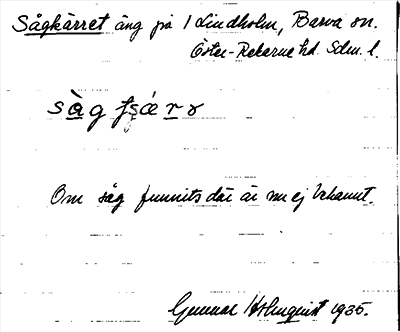 Sågkärret äng på 1 Lindholm, Barva sn.
Öster-Rekarne hd. Sdm. l.
Om såg funnits där är nu ej bekannt.
Gunnar Holmquist 1935.